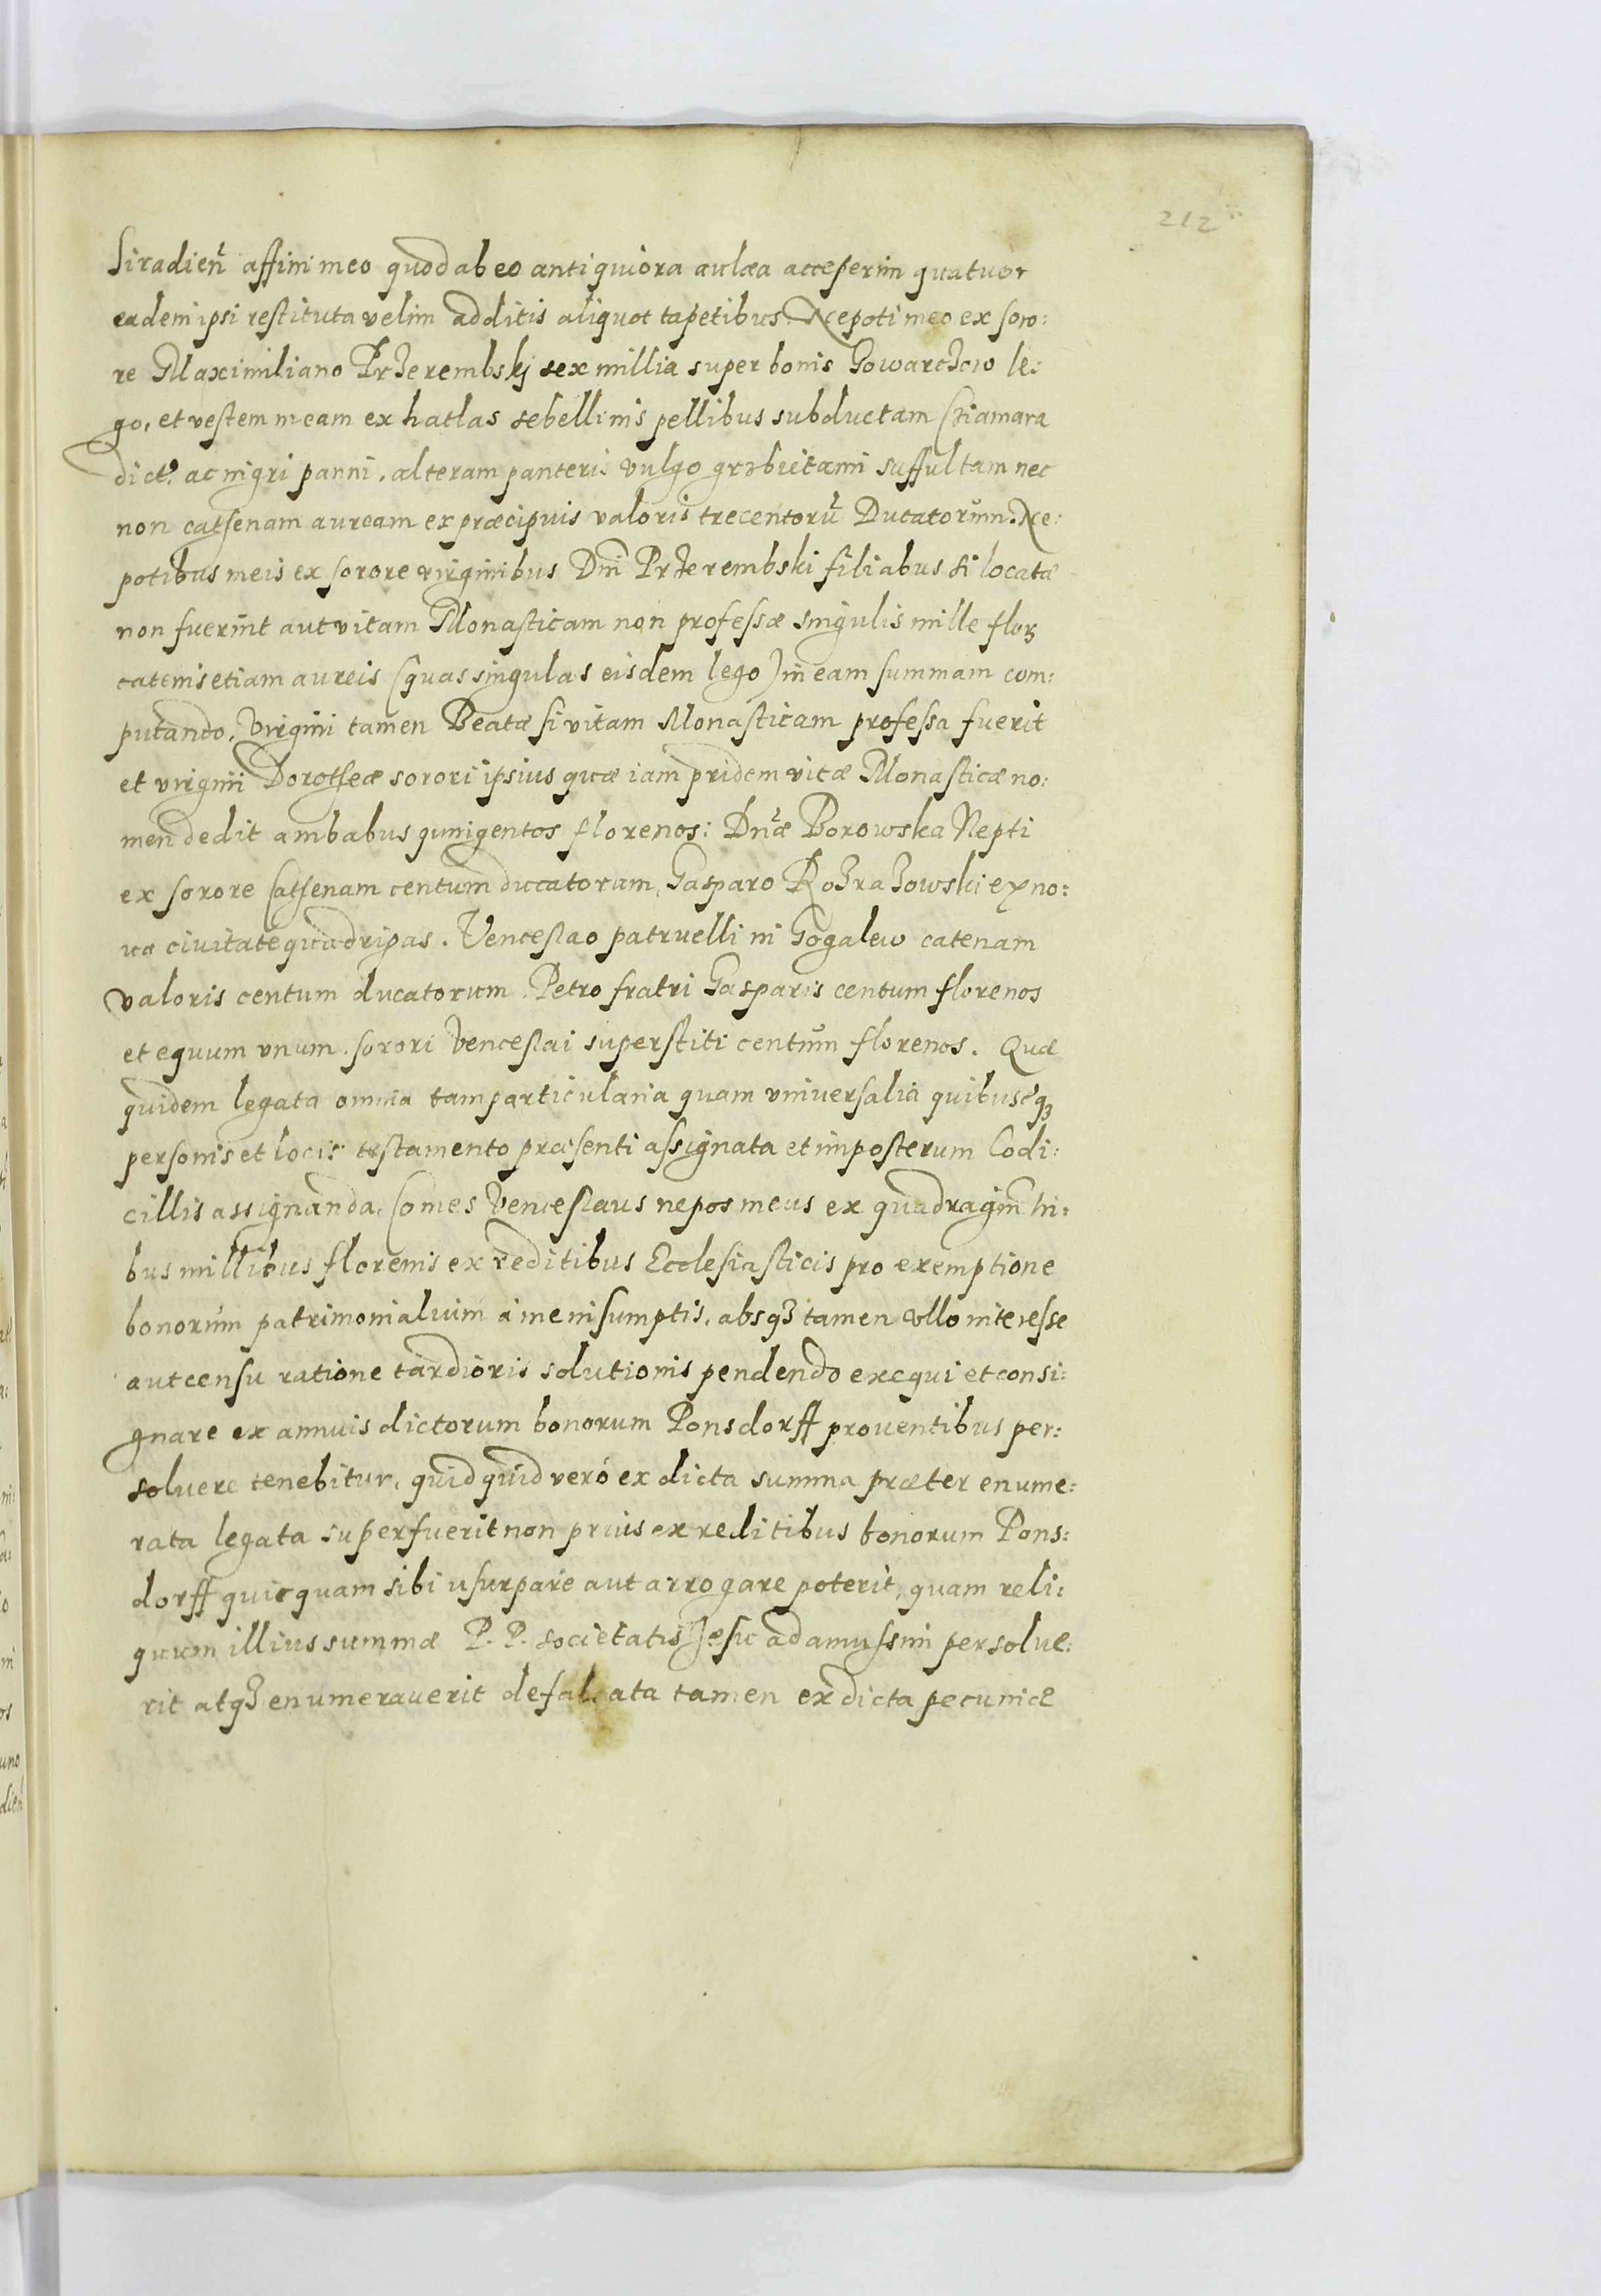 212
Siradień affini meo quod ab eo antiquiora aulæa acceperim quatuor
eadem ipsi restituta velim additis aliquot tapetibus. Nepoti meo ex soro:
re Maximiliano Przerembskj sex millia super bonis Gowarczow le:
go, et vestem meam ex hatlas sebellinis pellibus subductam Cziamara
dict. ac nigri panni, alteram panteris vulgo grzbietami suffultam nec
non cathenam auream ex præcipuis valoris trecentorū Ducatorum. Ne:
potibus meis ex sorore virginibus Dni Przerembski filiabus si locatæ
non fuerint aut vitam Monasticam non professæ singulis mille flor
catenis etiam aureis (quas singulas eisdem lego) in eam summam com:
putando, Virgini tamen Beatæ si vitam Monasticam professa fuerit
et virgini Dorotheæ sorori ipsius quæ iam pridem vitæ Monasticæ no:
men dedit ambabus quingentos florenos: Dnæ Borowska Nepti
ex sorore Cathenam centum ducatorum, Gasparo Rozrazowski ex no:
ua ciuitate quadripas. Venceslao patruelli in Gogalew catenam
valoris centum ducatorum. Petro fratri Gasparis centum florenos
et equum vnum. sorori Venceslai superstiti centum florenos. Quæ
quidem legata omnia tam particularia quam vniuersalia quibuscqȝ
personis et locis testamento præsenti assignata et imposterum Codi:
cillis assignanda, Comes Venceslaus nepos meus ex quadragin ti:
bus millibus florenis ex reditibus Ecclesiasticis pro exemptione
bonorum patrimonialium à me insumptis, absqȝ tamen vllo interesse
aut censu ratione tardioris solutionis pendendo exequi et consi:
gnare ex annuis dictorum bonorum Ponsdorff prouentibus per:
soluere tenebitur, quidquid verò ex dicta summa præter enume:
rata legata superfuerit non prius ex reditibus bonorum Pons:
dorff quicquam sibi usurpare aut arrogare poterit, quam reli:
quum illius summæ P. P. societatis Jesu ad amussim persolue:
rit atqȝ enumerauerit defalcata tamen ex dicta pecuniæ